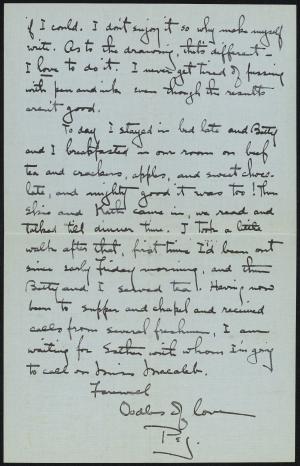 if I could. I don't enjoy it so why make myself
write. As to the drawing, that's different –
I love to do it. I never get tired of fussing
with pen and ink even though the results
aren't good.
To day I stayed in bed late and Betty
and I breakfasted in our room on beef
tea and crackers, apples, and sweet choco-
late, and mighty good it was too! Then
and Kath came in, we read and
talked till dinner time. I took a little
walk after that, first time I'd been out
since early Friday morning, and then
Betty and I served tea. Having now
been to supper and chapel and received
calls from several freshmen, I am
waiting for Esther with whom I'm going
to call on
Farewell
Oodles of love
Peg.